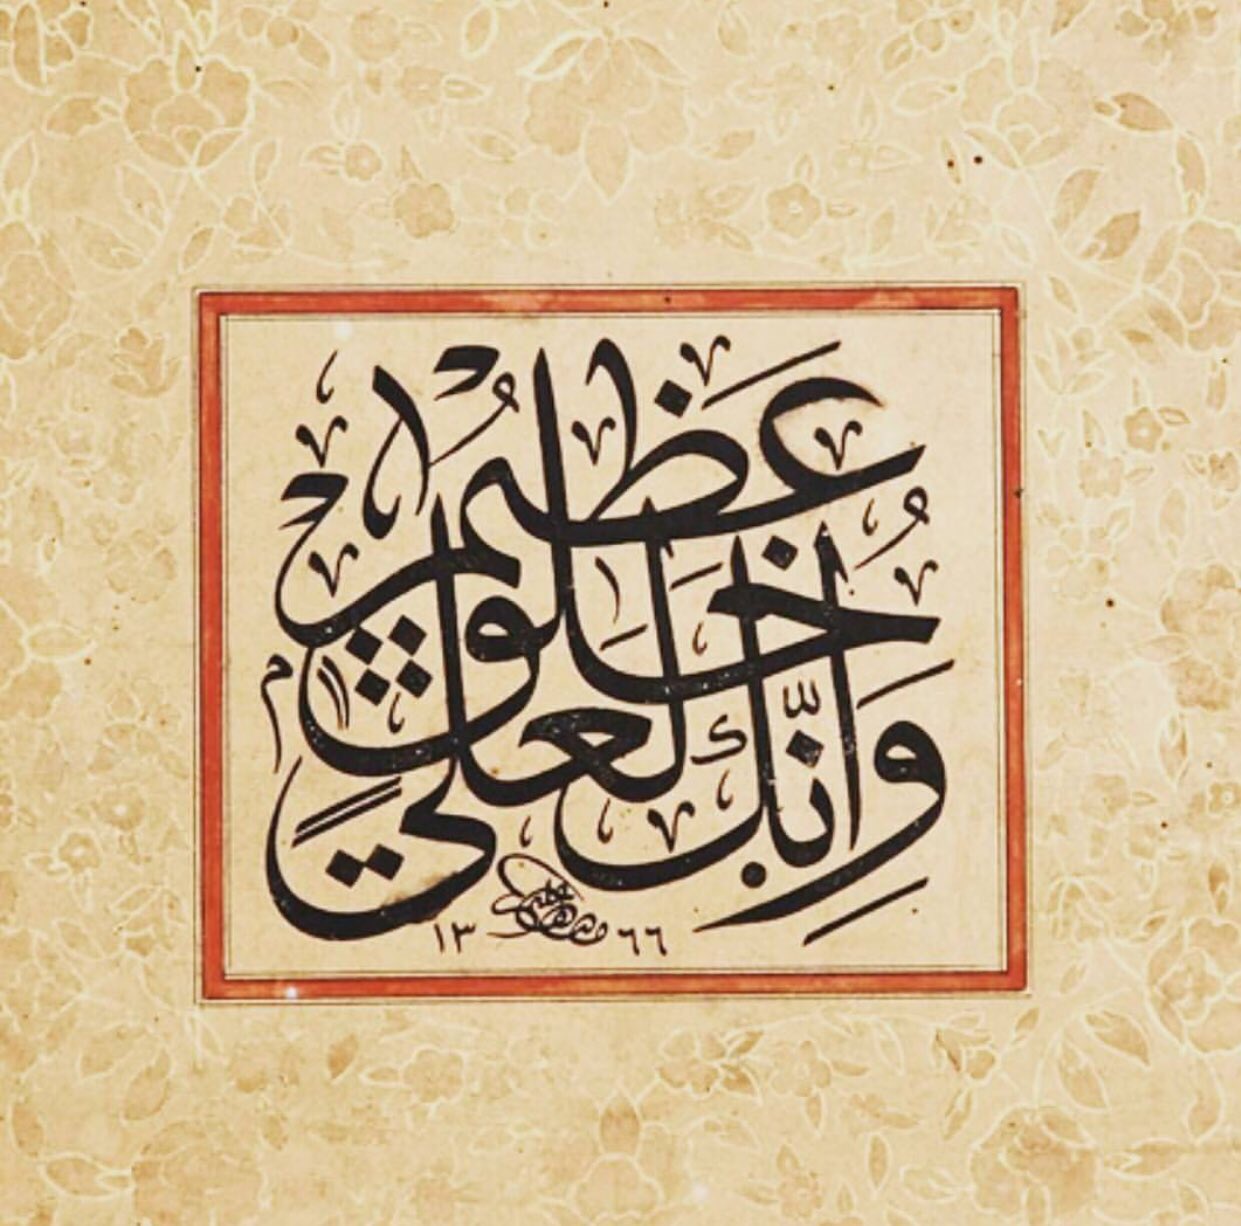 وَإِنَّكَ لَعَلَىٰ خُلُقٍ عَظِيمٍ
١٣٦٦